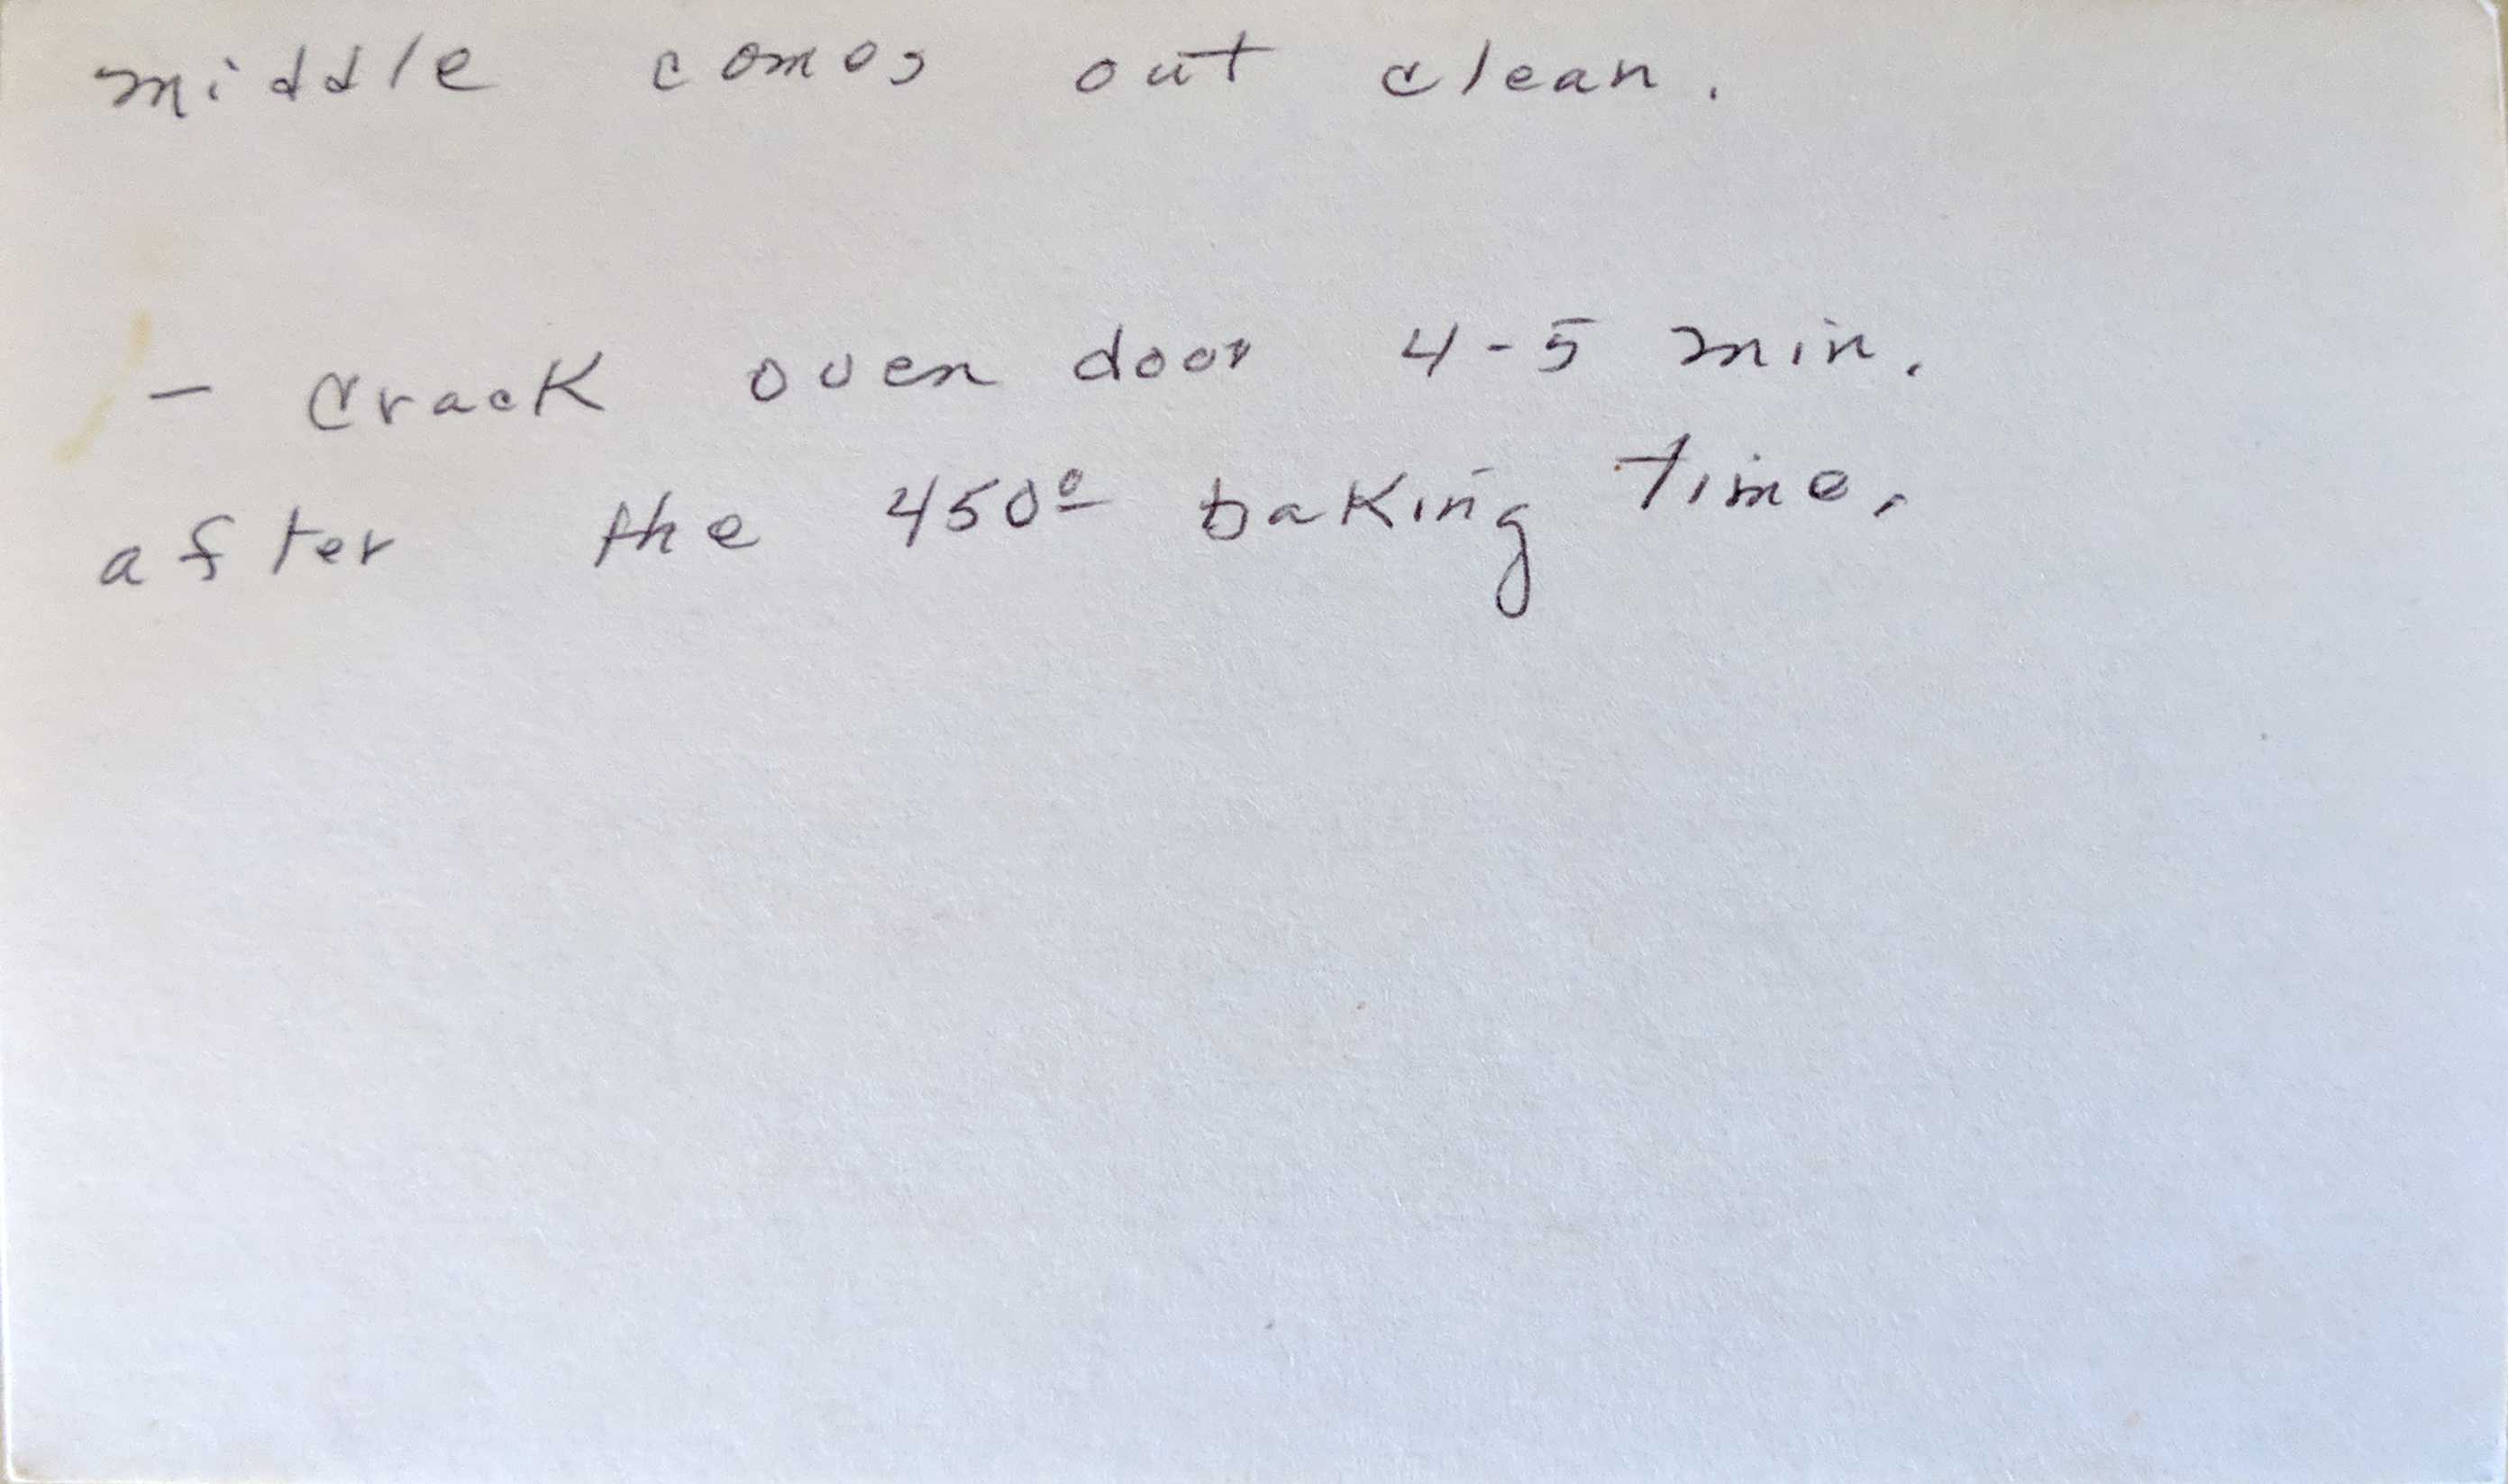 middle comes out clean.
- Crack oven door 4-5 min.
after the 450º baking time.